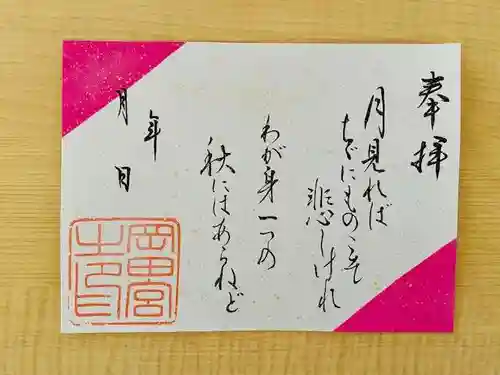 奉拝
月見れば
ちぢにものこそ
悲しけれ
わが身一つの
秋にはあらねど
年
月 日
岡田宮
之印